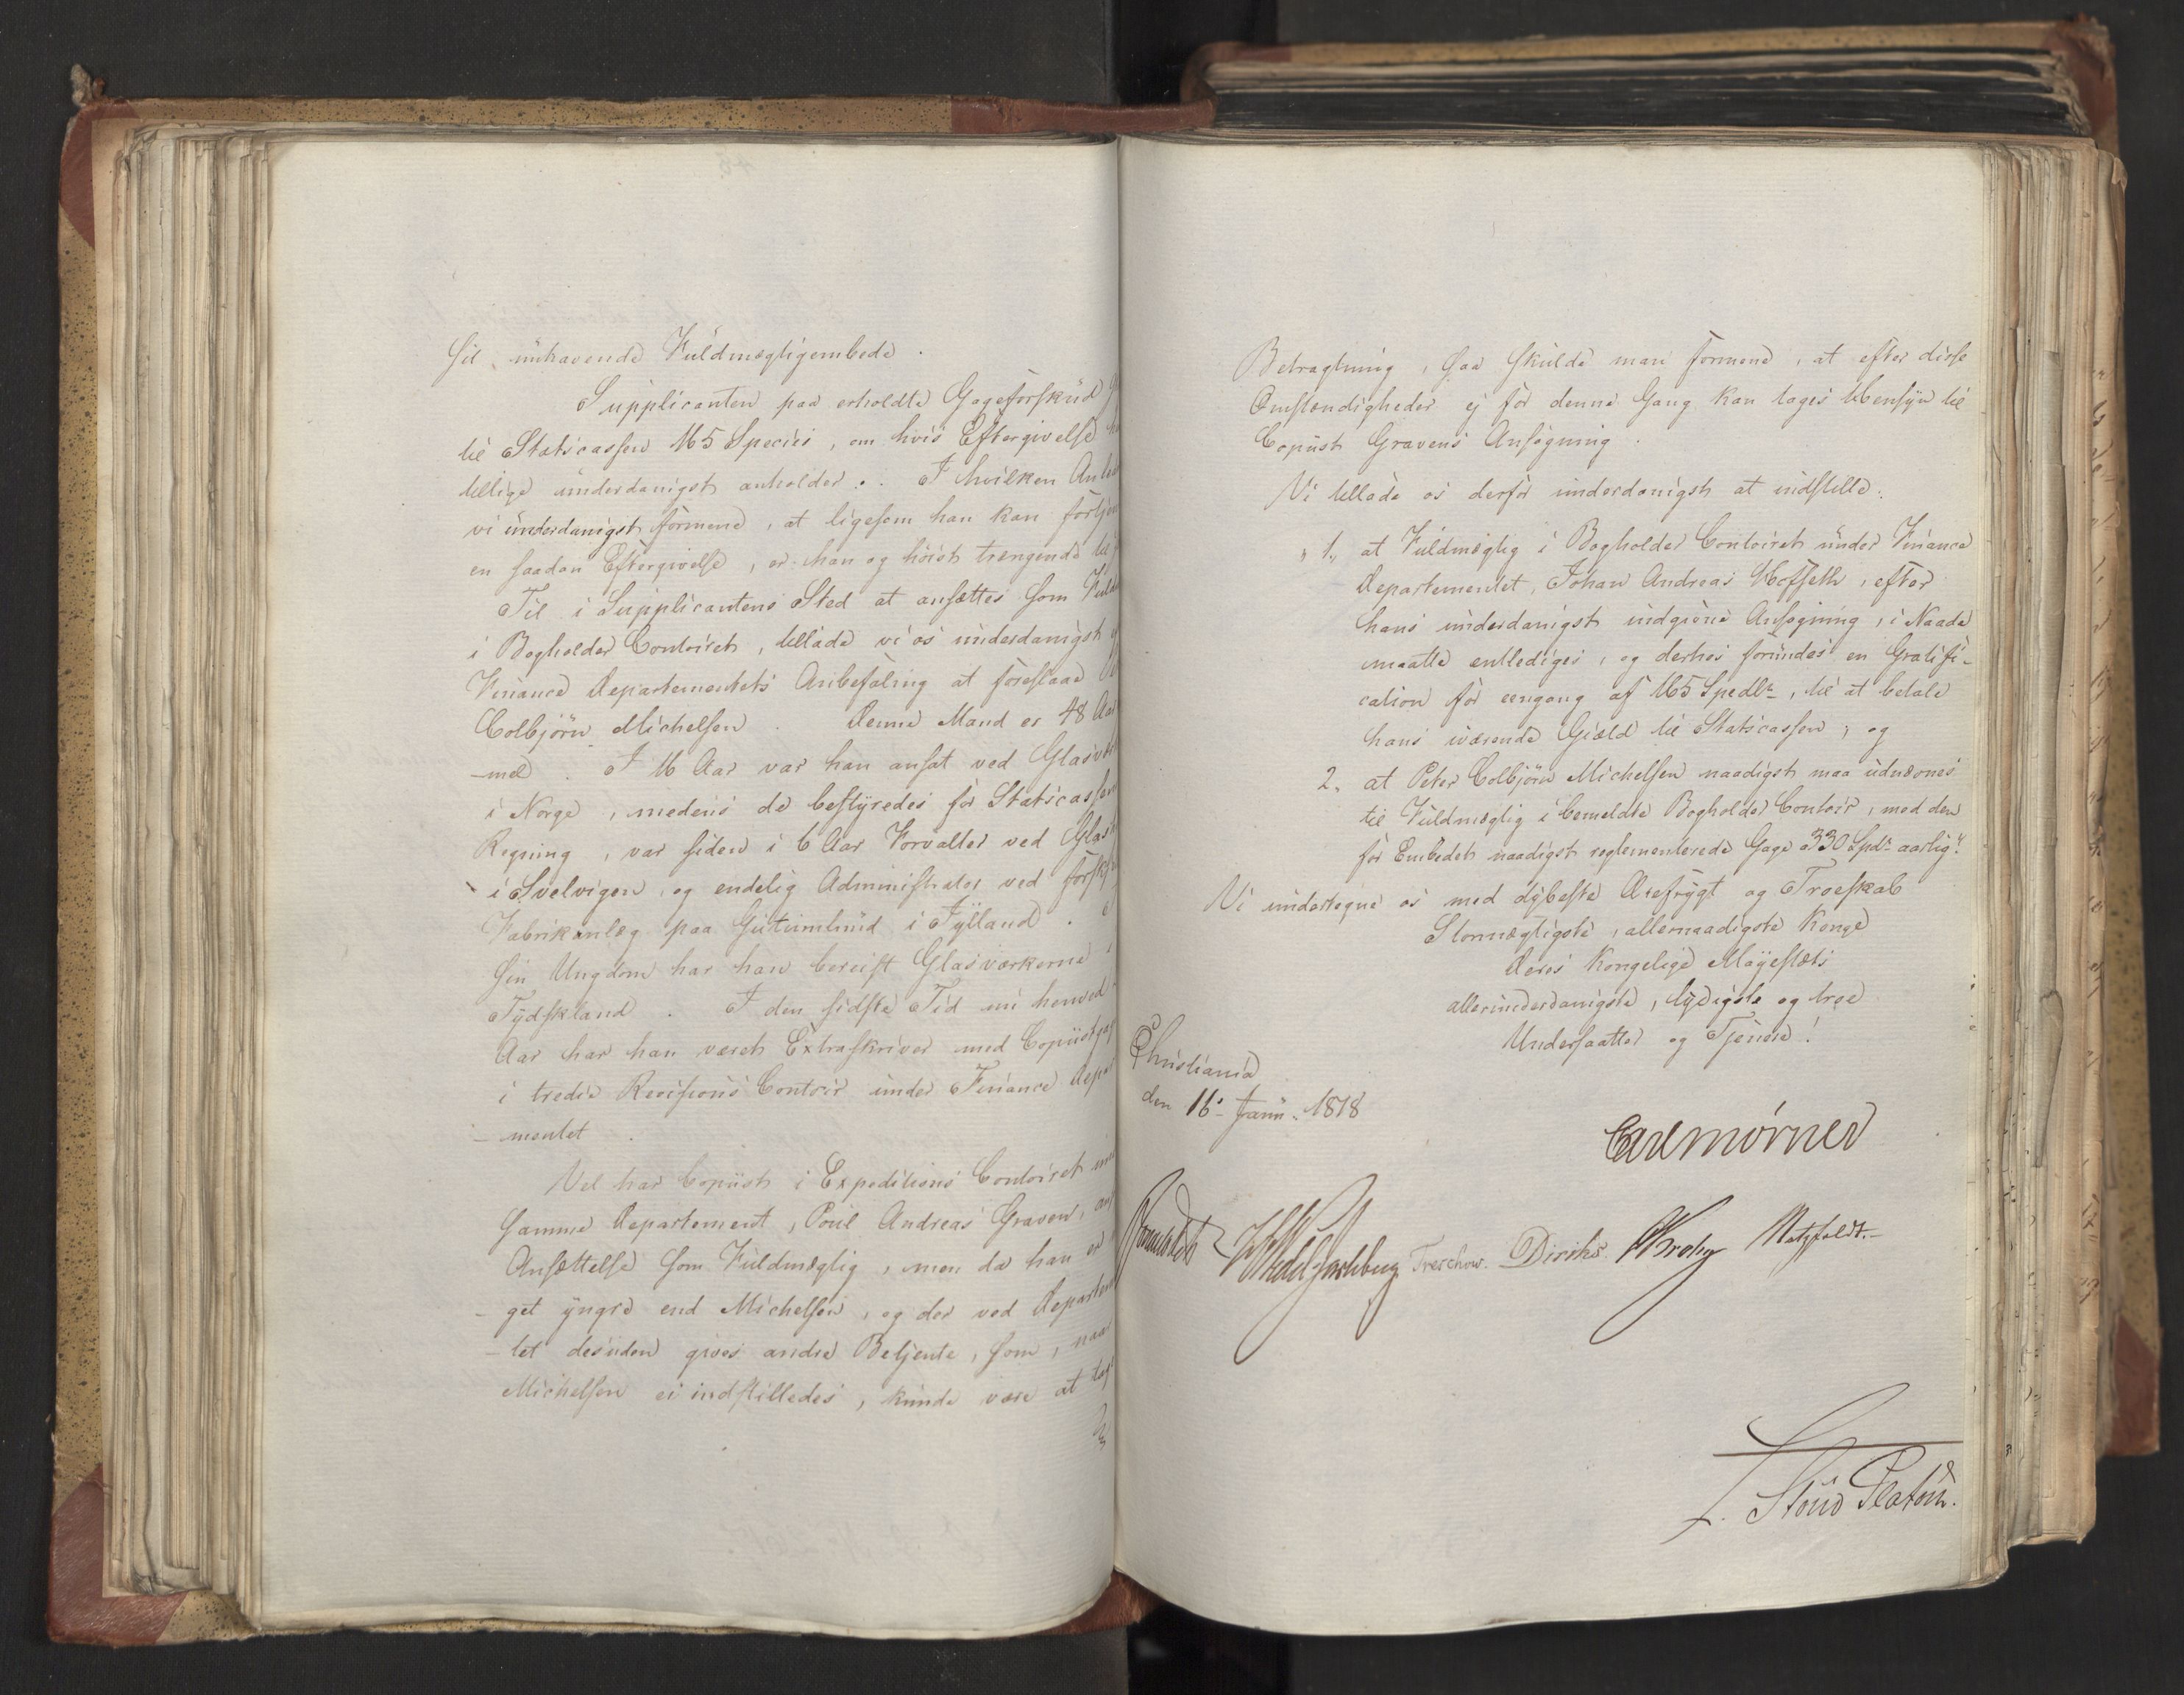 sit nuhavende Fuldmægtigembede.
Supplicanten paa erholdte Gageforskud
til Statscassen 165 Species, om hvis Eftergivelse
tillige underdanigst anholder. I hvilken
vi underdanigst formene, at ligesom han kan
en saadan Eftergivelse, er han og høist trængende
Til i Supplicantens Sted at ansættes som
i Bogholder Contoiret, tillade vi os underdanigst
Finance Departementets Anbefaling at foreslaae
Colbjörn Michelsen. Denne Mand er 48 Aar
-mel. I 16 Aar var han ansat ved
i Norge, medens de bestyredes for Statscassens
Regning, var siden i 6 Aar Forvalter ved
i Svelvigen, og endelig Administrator ved
Fabrikanlæg paa i Jylland.
sin Ungdom har han bereist Glasværkerne
Tydskland. I den sidste Tid nu henved
Aar har han været Extraskriver med
i tredie Revisions Contoir under Finance
-mentet.
Vel har Copiist i Expeditions Contoiret
samme Departement, Poul Andreas Graven,
Ansættelse som Fuldmægtig, men da han er
-get yngre end Michelsen, og der ved
-tet desuden gives andre Betjente, som, naar
Michelsen ei indstilledes, kunde være at
Betragtning, saa skulde man formene, at efter disse
Omstændigheder ej for denne Gang kan tages Hensyn til
Copiist Gravens Ansøgning.
Vi tillade os derfor underdanigst at indstille:
"1, at Fuldmægtig i Bogholder Contoiret under Finance
Departementet, Johan Andreas Hoffeth, efter
hans underdanigst indgivne Ansøgning, i Naade
maatte entlediges, og derhos forundes en Gratifi-
cation for eengang af 165 Spedlr, til at betale
hans værende Giæld til Statscassen; og
2, at Peter Colbjörn Michelsen naadigst maa udnævnes
til Fuldmægtig i bemeldte Bogholder Contoir, med den
for Embedet naadigst reglementerede Gage 330 Spdr aarlig".
Vi undertegne os med dybeste Ærefrygt og Troeskab
Stormægtigste, allernaadigste Konge
Deres Kongelige Majestæts
allerunderdanigste, lydigste og troe
Undersaatter og Tjenere!
Christiania
den 16 Janu. 1818
Carl Mörner
Sommerhielm Wedel Jarlsberg Treschow. Diriks Krohg Motzfeldt.
Stoud Platou.